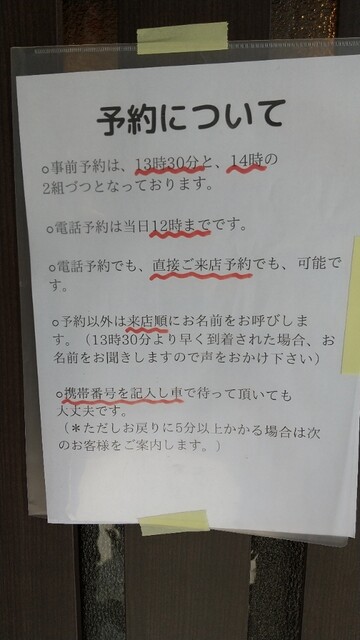 予約について
○事前予約は、13時30分と、14時の
2組づつとなっております。
○電話予約は当日12時までです。
○電話予約でも、直接ご来店予約でも、可能で
す。
○予約以外は来店順にお名前をお呼びしま
す。（13時30分より早く到着された場合、お
名前をお聞きしますので声をおかけ下さい）
○携帯番号を記入し車で待って頂いても
大丈夫です。
（＊ただしお戻りに5分以上かかる場合は次
のお客様をご案内します。）